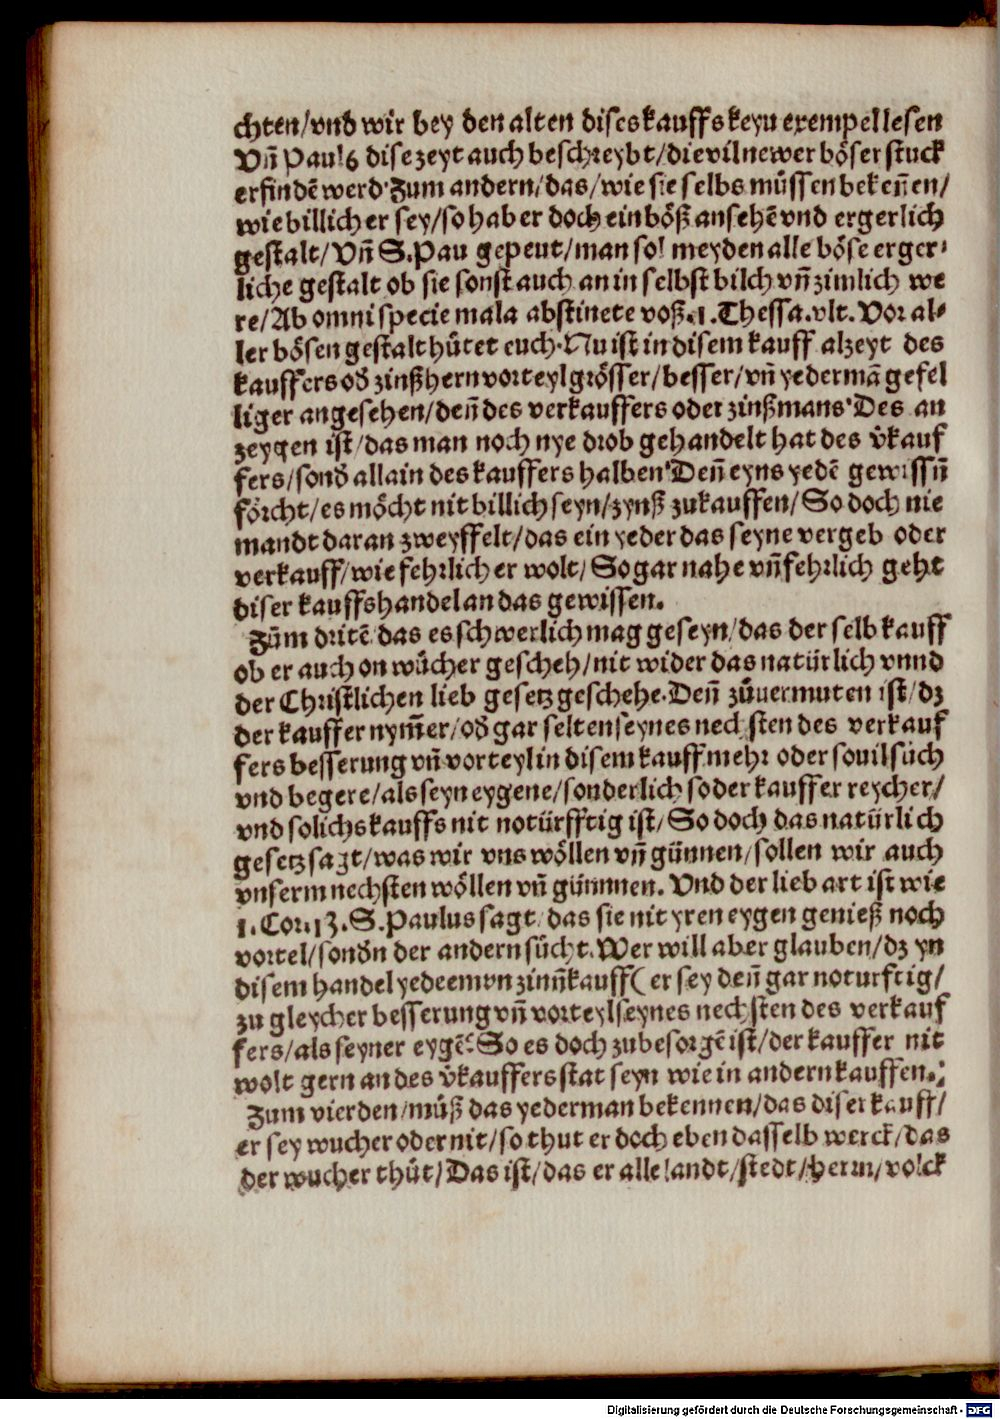 chten/vnd wir bey den alten dises kauffs keyn exempel lesen
Vñ Paulꝰ dise zeyt auch beschreybt/die vil newer böser stuck
erfindē werd. Zum andern/das/wie sie selbs müssen bekeñen/
wie billich er sey/so hab er doch ein böß ansehē vnd ergerlich
gestalt/Vñ S.Pau gepeut/man sol meyden alle böse erger⸗
liche gestalt ob sie sonst auch an in selbst bilch vñ zimlich we
re/Ab omni specie mala abstinete voß.1.Thessa.vlt. Vor al⸗
ler bösen gestalt hůtet euch. Nu ist in disem kauff alzeyt des
kauffers oð zinßhern vorteyl grösser/besser/vñ yedermā gefel
liger angesehen/deñ des verkauffers oder zinßmans. Des an
zeygen ist/das man noch nye drob gehandelt hat des v̇kauf
fers/sonð allain des kauffers halben. Deñ eyns yedē gewissñ
förcht/es möcht nit billich seyn/zynß zukauffen/So doch nie
mandt daran zweyffelt/das ein yeder das seyne vergeb oder
verkauff/wie fehrlich er wolt/So gar nahe vñ fehrlich geht
diser kauffshandel an das gewissen.
Zům dritē das es schwerlich mag geseyn/das der selb kauff
ob er auch on wůcher gescheh/nit wider das natürlich vnnd
der Christlichen lieb gesetz geschehe. Deñ zůuermuten ist/dz
der kauffer nym̄er/oð gar selten seynes nechsten des verkauf
fers besserung vñ vorteyl in disem kauff mehr oder souil sůch
vnd begere/als seyn eygene/sonderlich so der kauffer reycher/
vnd solichs kauffs nit notürfftig ist/So doch das natürlich
gesetz sagt/was wir vns wöllen vñ günnen/sollen wir auch
vnserm nechsten wöllen vñ günnnen. Vnd der lieb art ist wie
1.Cor.13.S.Paulus sagt/das sie nit yren eygen genieß noch
vortel/sonðn der andern sůcht. Wer will aber glauben/dz yn
disem handel yedeemvn zinñkauff(er sey deñ gar noturftig/
zu gleycher besserung vñ vorteyl seynes nechsten des verkauf
fers/als seyner eygē? So es doch zubesorgē ist/der kauffer nit
wolt gern an des v̇kauffers stat seyn wie in andern kauffen.
Zum vierden/můß das yederman bekennen/das diser kauff/
er sey wucher oder nit/so thut er doch eben dasselb werck/das
der wucher thůt/Das ist/das er alle landt/stedt/herrn/volck
Digitalisierung gefördert durch die Deutsche Forschungsgemeinschaft - DFG